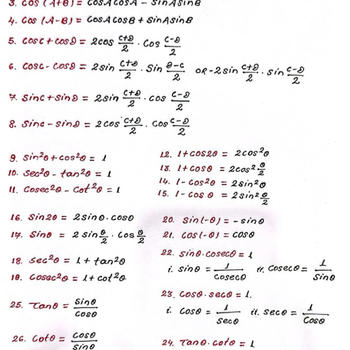 3. cos (A+B) = cosAcosA - sinAsinB
4. cos (A-B) = cosAcosB + sinAsinB
5. cosc + cosD = 2cos (C+D)/2 . cos (C-D)/2
6. cosc - cosD = 2sin (C+D)/2 . sin (D-C)/2 OR -2sin (C+D)/2 . sin (C-D)/2
7. sinc + sinD = 2sin (C+D)/2 . cos (C-D)/2
8. sinc - sinD = 2cos (C+D)/2 . cos (C-D)/2
9. sin²θ + cos²θ = 1
10. sec²θ - tan²θ = 1
11. cosec²θ - cot²θ = 1
12. 1 + cos2θ = 2cos²θ
13. 1 + cosθ = 2cos² θ/2
14. 1 - cos²θ = 2sin²θ
15. 1 - cosθ = 2sin² θ/2
16. sin2θ = 2sinθ . cosθ
17. sinθ = 2 sin θ/2 . cos θ/2
18. sec²θ = 1 + tan²θ
19. cosec²θ = 1 + cot²θ
20. sin(-θ) = -sinθ
21. cos(-θ) = cosθ
22. sinθ . cosecθ = 1
i. sinθ = 1/cosecθ ii. cosecθ = 1/sinθ
23. cosθ . secθ = 1.
i. cosθ = 1/secθ ii. secθ = 1/cosθ
24. Tanθ . cotθ = 1.
25. Tanθ = sinθ/cosθ
26. cotθ = cosθ/sinθ